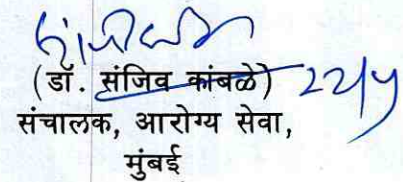 (डॉ. संजिव कांबळे) 22/5
संचालक, आरोग्य सेवा,
मुंबई